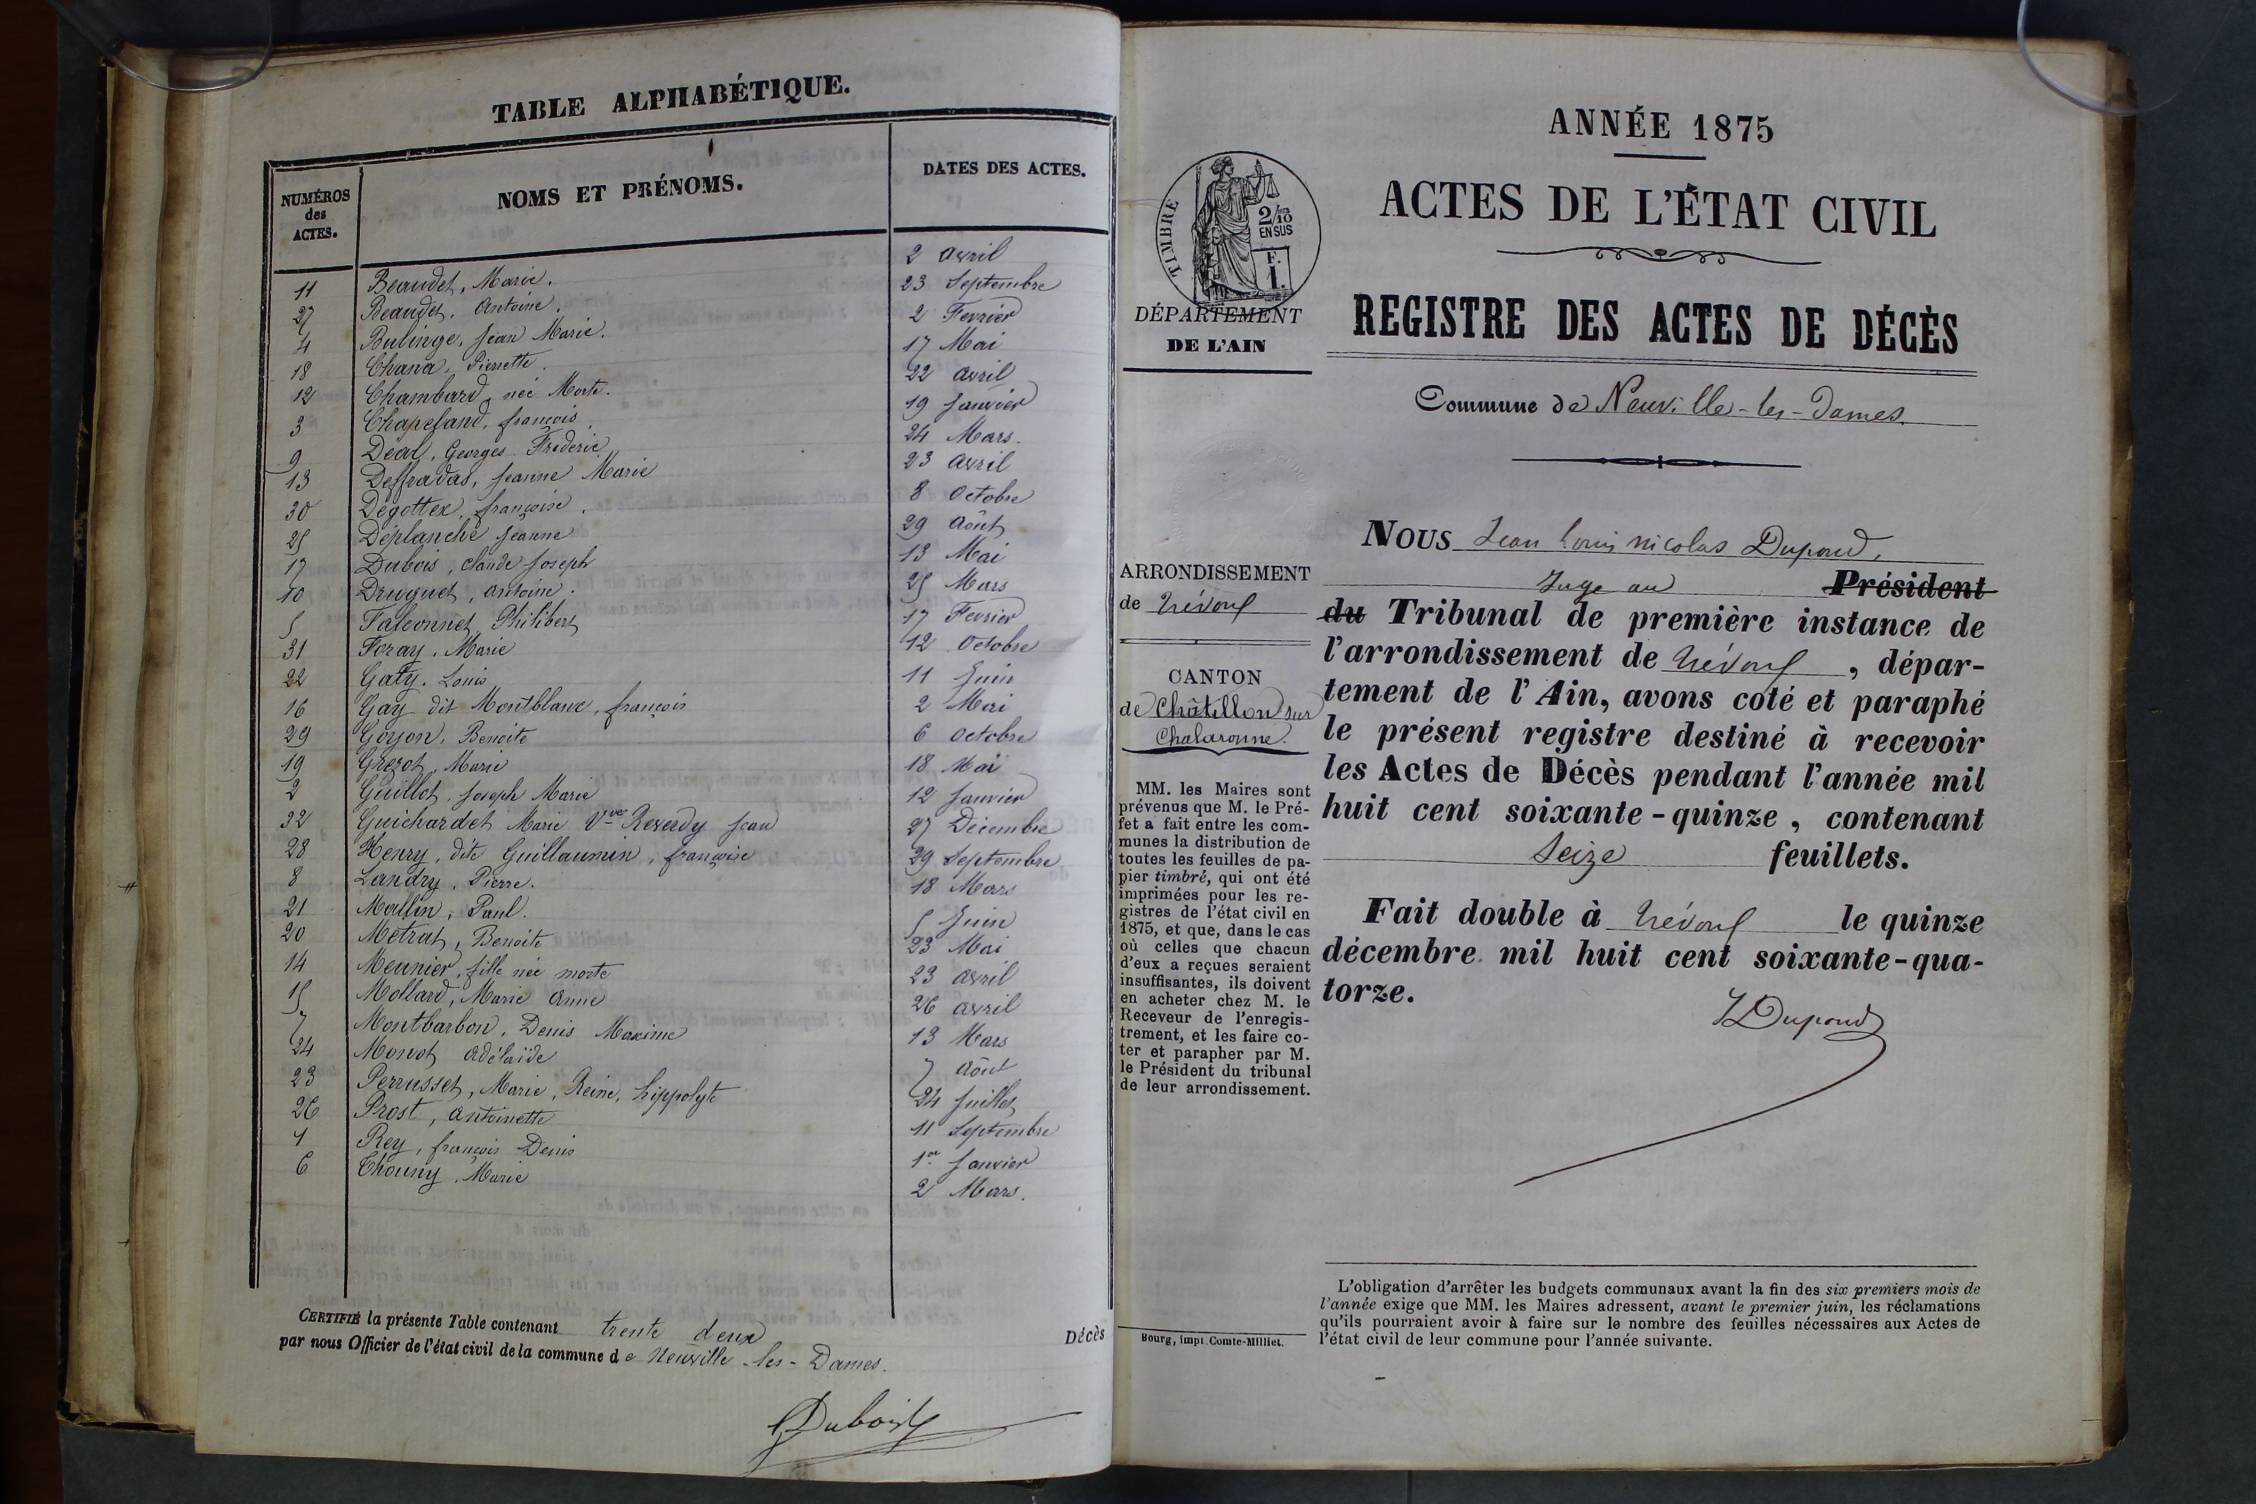 TABLE ALPHABÉTIQUE.
NUMÉROS des ACTES. NOMS ET PRÉNOMS. DATES DES ACTES.
11 Beaudet, Marie. 2 avril
27 Beaudet, Antoine. 23 Septembre
4 Bulinge, Jean Marie. 2 Fevrier
18 Chana, Pierrette. 17 Mai
12 Chambard, née Morte. 22 avril
3 Chapeland, françois. 19 Janvier
9 Déal, Georges Fréderic 24 Mars.
13 Deffradas, Jeanne Marie 23 avril
30 Dégottex, françoise. 8 Octobre
25 Déplanche Jeanne 29 Août
17 Dubois, Claude Joseph 13 Mai
10 Druguet, antoine. 25 Mars
5 Falconnet, Philibert 17 Fevrier
31 Foray, Marie 12 Octobre
22 Gaty, Louis 11 Juin
16 Gay dit Montblanc, françois 2 Mai
29 Goyon, Benoite 6 octobre
19 Grezot, Marie 18 Mai
2 Guillot, Joseph Marie 12 Janvier
32 Guichardet Marie Vve Reverdy Jean 27 Décembre
28 Henry, dite Guillaumin, françoise 29 Septembre
8 Landry, Pierre. 18 Mars
21 Mallin, Paul. 5 Juin
20 Métrat, Benoite 23 Mai
14 Meunier, fille née morte 23 avril
15 Mollard, Marie Anne 26 avril
7 Montbarbon, Denis Maxime 13 Mars
24 Monot adélaïde 7 Août
23 Perrusset, Marie, Reine, hippolyte 24 Juillet
26 Prost, antoinette 11 Septembre
1 Rey, françois Denis 1er Janvier
6 Thouny, Marie 2 Mars.
CERTIFIÉ la présente Table contenant trente deux Décès
par nous Officier de l'état civil de la commune de Neuville-les-Dames.
Dubois
ANNÉE 1875
ACTES DE L'ÉTAT CIVIL
REGISTRE DES ACTES DE DÉCÈS
Commune de Neuville-les-Dames.
TIMBRE
2/10
EN SUS
F.
1.
DÉPARTEMENT
DE L'AIN
ARRONDISSEMENT
de Trévoux
CANTON
de Châtillon sur
Chalaronne.
MM. les Maires sont
prévenus que M. le Pré-
fet a fait entre les com-
munes la distribution de
toutes les feuilles de pa-
pier timbré, qui ont été
imprimées pour les re-
gistres de l'état civil en
1875, et que, dans le cas
où celles que chacun
d'eux a reçues seraient
insuffisantes, ils doivent
en acheter chez M. le
Receveur de l'enregis-
trement, et les faire co-
ter et parapher par M.
le Président du tribunal
de leur arrondissement.
Bourg, impr. Comte-Milliet.
NOUS Jean Louis nicolas Dupond,
Juge au Président
du Tribunal de première instance de
l'arrondissement de Trévoux, dépar-
tement de l'Ain, avons coté et paraphé
le présent registre destiné à recevoir
les Actes de Décès pendant l'année mil
huit cent soixante-quinze, contenant
Seize feuillets.
Fait double à Trévoux le quinze
décembre mil huit cent soixante-qua-
torze.
Dupond
L'obligation d'arrêter les budgets communaux avant la fin des six premiers mois de
l'année exige que MM. les Maires adressent, avant le premier juin, les réclamations
qu'ils pourraient avoir à faire sur le nombre des feuilles nécessaires aux Actes de
l'état civil de leur commune pour l'année suivante.